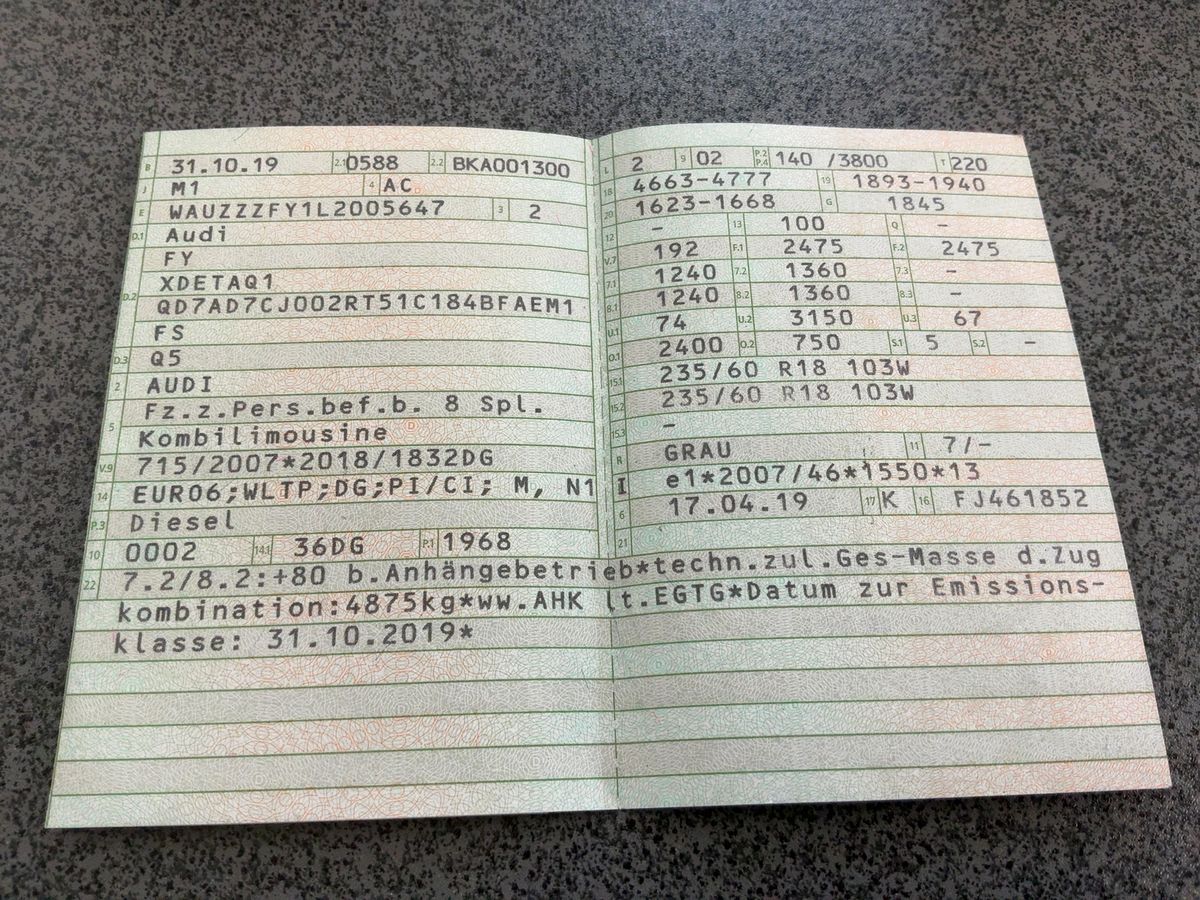 B 31.10.19 2.1 0588 2.2 BKA001300
J M1 4 AC
E WAUZZZFY1L2005647 3 2
D.1 Audi
FY
D.2 XDETAQ1
QD7AD7CJ002RT51C184BFAEM1
FS
D.3 Q5
2 AUDI
5 Fz.z.Pers.bef.b. 8 Spl.
Kombilimousine
V.9 715/2007*2018/1832DG
14 EURO6;WLTP;DG;PI/CI; M, N1 I
P.3 Diesel
10 0002 14.1 36DG P.1 1968
L 2 9 02 P.2 P.4 140 /3800 T 220
18 4663-4777 19 1893-1940
20 1623-1668 G 1845
12 - 13 100 Q -
V.7 192 F.1 2475 F.2 2475
7.1 1240 7.2 1360 7.3 -
8.1 1240 8.2 1360 8.3 -
U.1 74 U.2 3150 U.3 67
O.1 2400 O.2 750 S.1 5 S.2 -
15.1 235/60 R18 103W
15.2 235/60 R18 103W
15.3 -
R GRAU 11 7/-
e1*2007/46*1550*13
6 17.04.19 17 K 16 FJ461852
21
22 7.2/8.2:+80 b.Anhängebetrieb*techn.zul.Ges-Masse d.Zug
kombination:4875kg*ww.AHK lt.EGTG*Datum zur Emissions-
klasse: 31.10.2019*